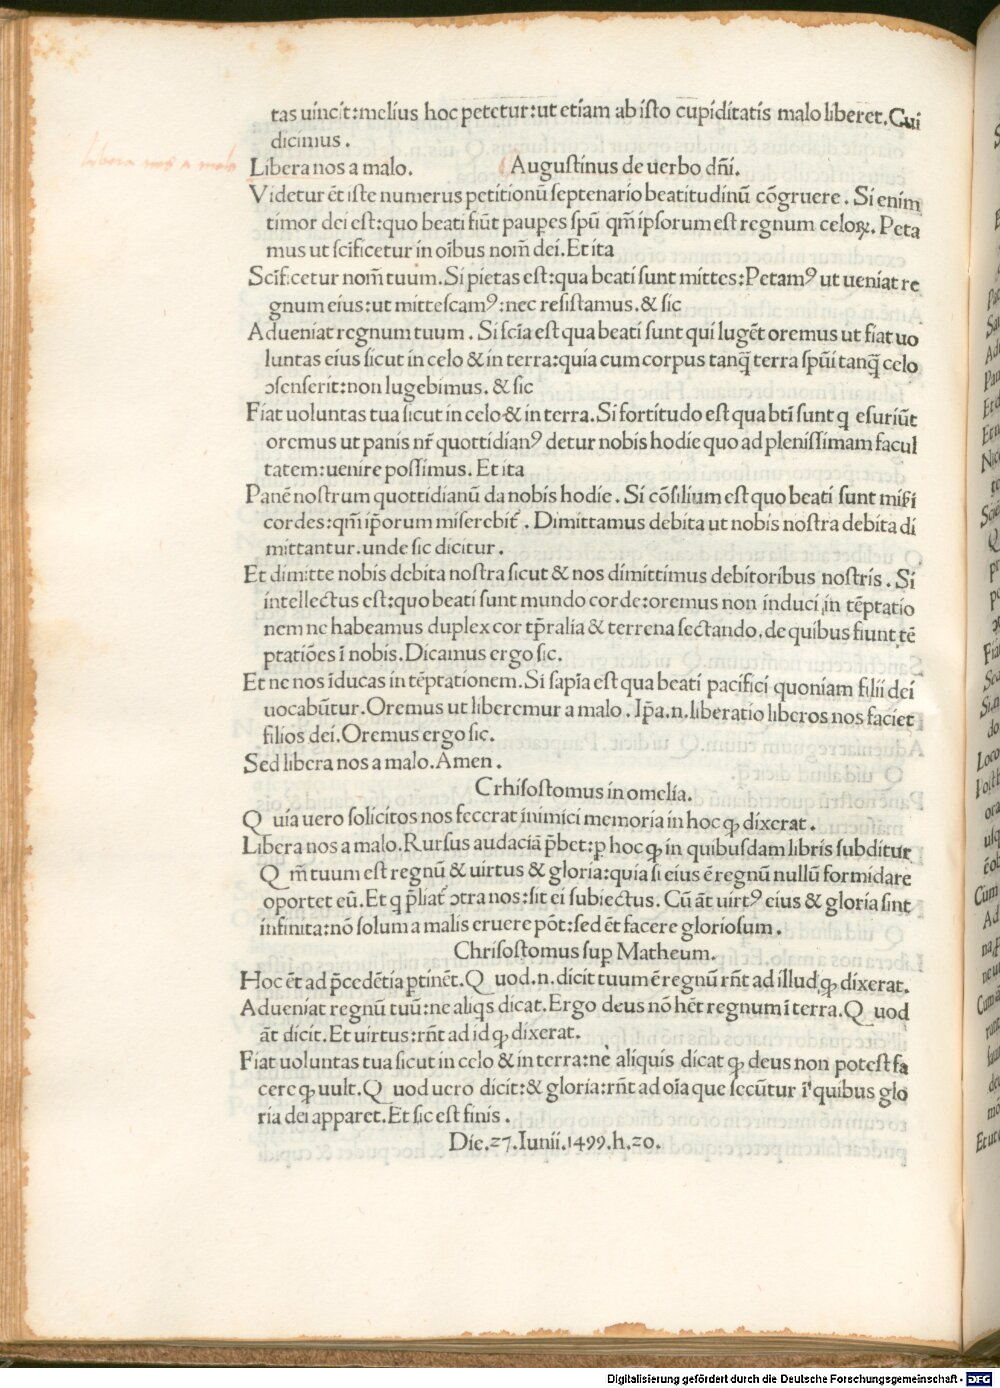 tas uincit:melius hoc petetur:ut etiam ab isto cupiditatis malo liberet.Cui
dicimus .
Libera nos a malo
Libera nos a malo. Augustinus de uerbo dñi.
Videtur ēt iste numerus petitionū septenario beatitudinū cōgruere . Si enim
timor dei est:quo beati fiūt paupes spū qm̄ ipsorum est regnum celoꝝ. Peta
mus ut scificetur in oībus nom̄ dei. Et ita
Scificetur nom̄ tuum. Si pietas est:qua beati sunt mittes:Petamꝰ ut ueniat re
gnum eius:ut mittescamꝰ:nec resistamus. & sic
Adueniat regnum tuum . Si scīa est qua beati sunt qui lugēt oremus ut fiat uo
luntas eius sicut in celo & in terra:quia cum corpus tanq̄ terra spūi tanq̄ celo
ↄsenserit:non lugebimus. & sic
Fiat uoluntas tua sicut in celo & in terra. Si fortitudo est qua btī sunt q esuriūt
oremus ut panis nr̄ quottidianꝰ detur nobis hodie quo ad plenissimam facul
tatem:uenire possimus. Et ita
Panē nostrum quottidianū da nobis hodie . Si cōsilium est quo beati sunt misi
cordes:qm̄ ip̄orum miserebit̄ . Dimittamus debita ut nobis nostra debita di
mittantur.unde sic dicitur .
Et dimitte nobis debita nostra sicut & nos dimittimus debitoribus nostris . Si
intellectus est:quo beati sunt mundo corde:oremus non induci in tēptatio
nem ne habeamus duplex cor tp̄ralia & terrena sectando.de quibus fiunt tē
ptatiōes ī nobis.Dicamus ergo sic.
Et ne nos īducas in tēptationem. Si sapīa est qua beati pacifici quoniam filii dei
uocabūtur. Oremus ut liberemur a malo . Ip̄a.n.liberatio liberos nos faciet
filios dei.Oremus ergo sic.
Sed libera nos a malo. Amen .
Crhisostomus in omelia.
Quia uero solicitos nos fecerat inimici memoria in hoc ꝙ dixerat .
Libera nos a malo. Rursus audaciā p̄bet:ꝑ hoc ꝙ in quibusdam libris subditur
Qm̄ tuum est regnū & uirtus & gloria:quia si eius ē regnū nullū formidare
oportet eū. Et q p̄liat̄ ↄtra nos:sit ei subiectus. Cū āt uirtꝰ eius & gloria sint
infinita:nō solum a malis eruere pōt:sed ēt facere gloriosum .
Chrisostomus sup Matheum.
Hoc ēt ad p̄cedētia ꝑtinēt. Quod.n.dicit tuum ē regnū rn̄t ad illud ꝙ dixerat.
Adueniat regnū tuū:ne aliqs dicat. Ergo deus nō hēt regnum ī terra. Quod
āt dicit. Et uirtus:rn̄t ad id ꝙ dixerat.
Fiat uoluntas tua sicut in celo & in terra:ne aliquis dicat ꝙ deus non potest fa
cere ꝙ uult. Quod uero dicit:& gloria:rn̄t ad oīa que secūtur ī quibus glo
ria dei apparet. Et sic est finis .
Die.27.Iunii.1499.h.20.
Digitalisierung gefördert durch die Deutsche Forschungsgemeinschaft - DFG